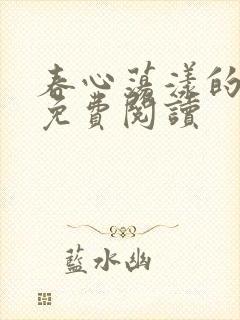 春心蕩漾的
免費閱讀
藍水幽